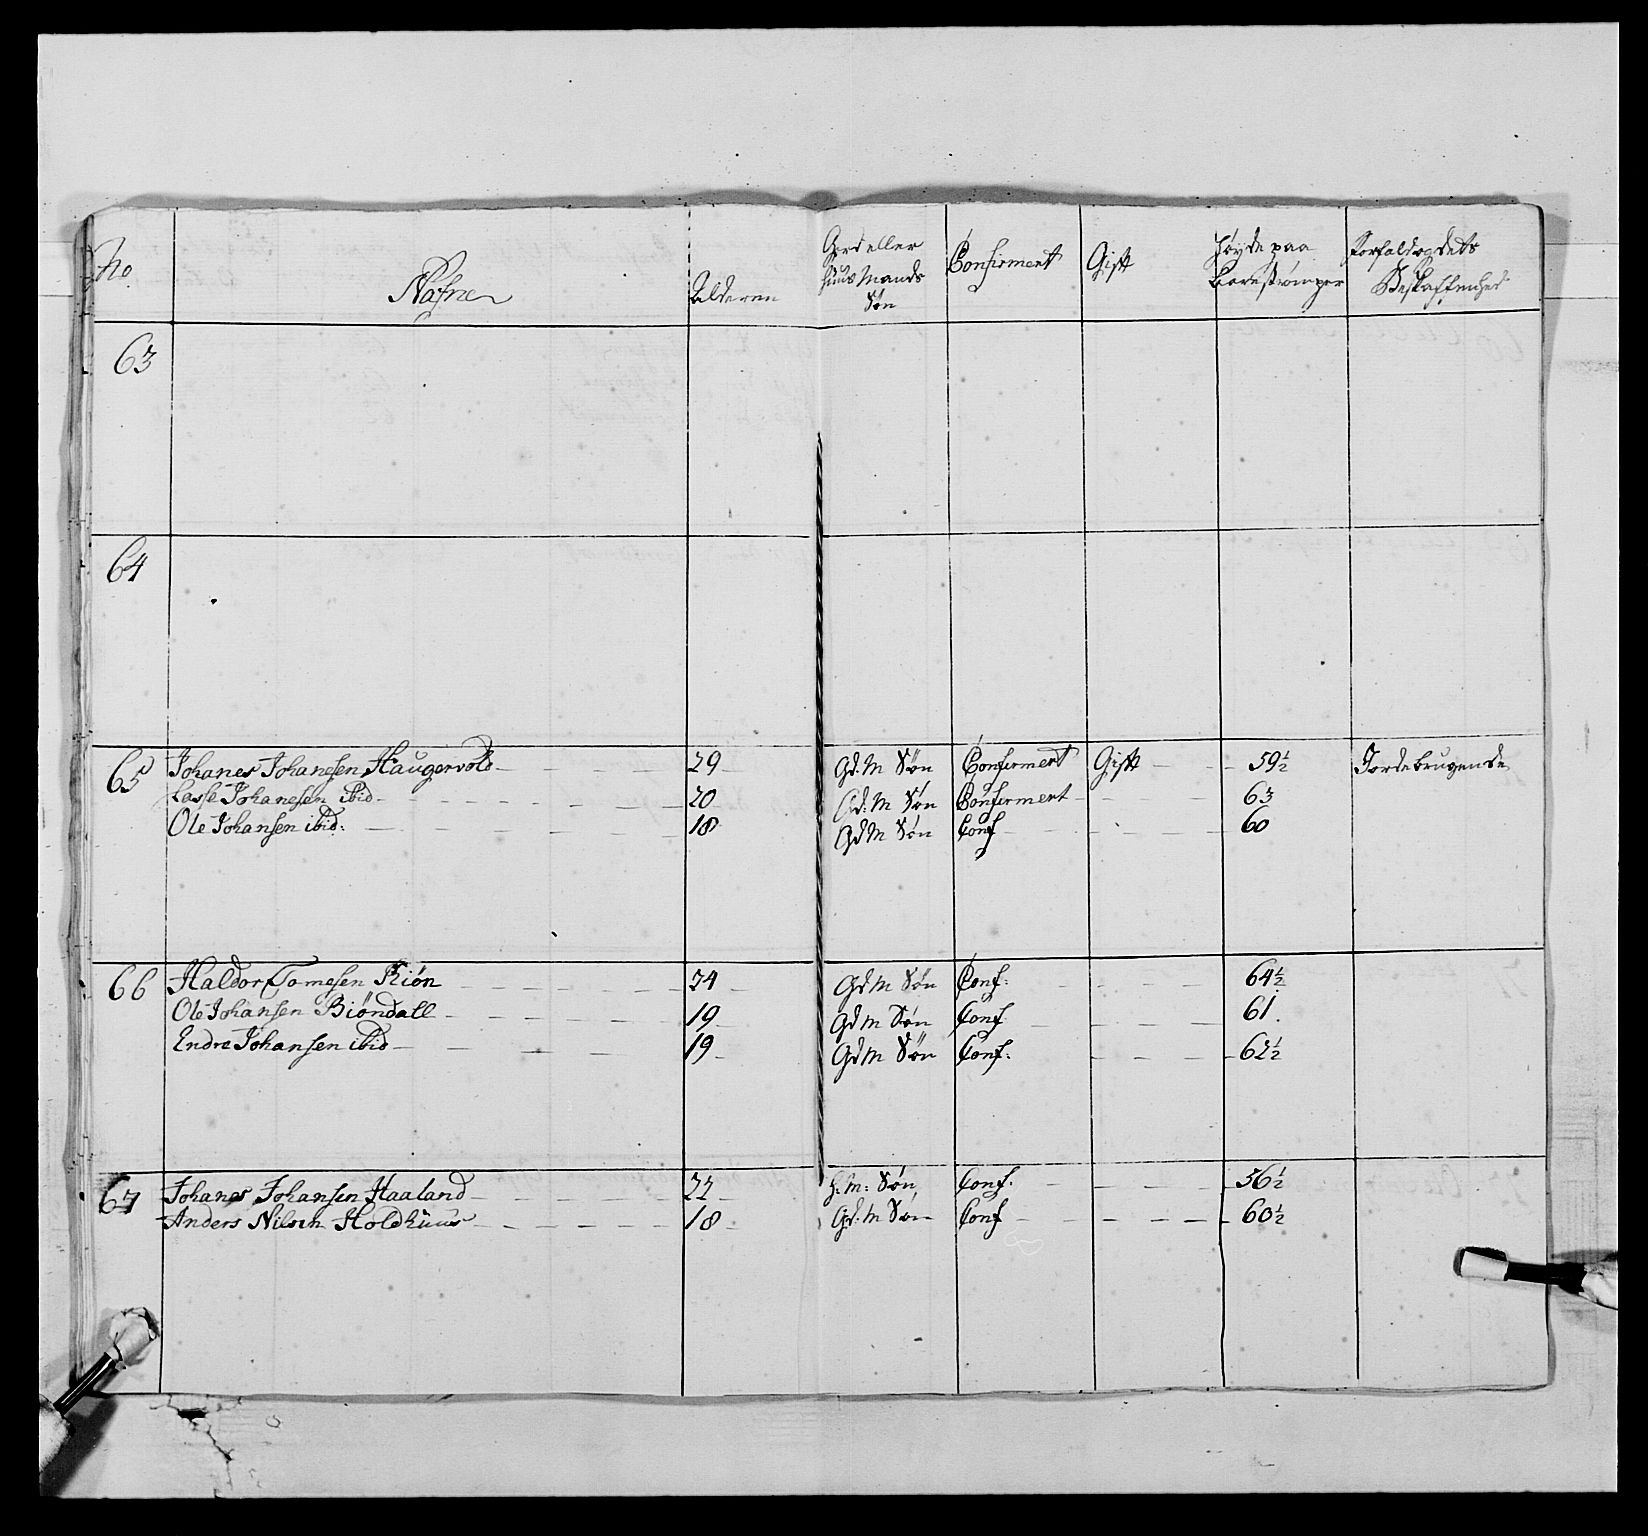 No. Nafne Alderen Gard eller Huus Mands Søn Confirmert Gift Høyde paa Barestrømper Forfald og dets Beskaffenhed
63
64
65 Johanes Johanesen Haugervold 29 Gd: M Søn Confirmert Gift 59½ Jordebrugende
Lasse Johanesen ibid 20 Gd: M Søn Confirmert 63
Ole Johansen ibid: 18 Gd M Søn Conf 60
66 Haldor Tomesen Riön 24 Gd M Søn Conf: 64½
Ole Johansen Biöndall 19 Gd M Søn Conf 61.
Endre Johansen ibid 19 Gd M Søn Conf: 62½
67 Johanes Johansen Haaland 22 H: M: Søn Conf: 56½
Anders Nilsen Holdhuus 18 Gd: M Søn Conf 60½